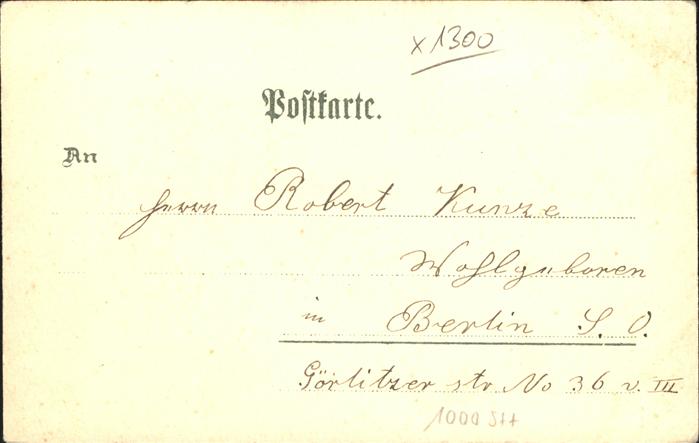 x1300
Postkarte.
An
Herrn Robert Kunze
Wohlgeboren
in Berlin S. O.
Görlitzer str No 36 v. III
1000